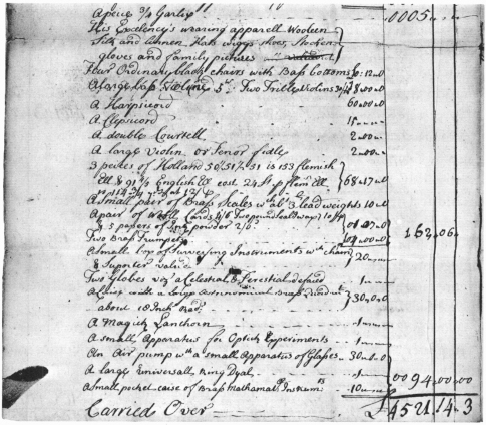 A peice 3/4 Garlix
0005
His Excelency's wearing apparell Woolen
Silk and Linnen, Hats wiggs shoes, Stocken
gloves and family pictures
Four Ordinary black chairs with Bass bottoms 0:12:0
A large bass Violine 5£. Two Trible Violins
A Harpsicord 60:00:0
A Clepsicord 15
A double Courtell 2:00
A large violin or Tenor fidle 2:00
3 peices of Holland 50/51 & 51 is 153 flemish
Ell & 91 3/4 English Ells cost 24 St p flem Ell 68:17:0
A Small pair of Brass Skales wth 3 lead weights 10:0
A pair of Wooll Cards
& 5 papers of Ink powder 2/6
162:06
Two Brass Trumpets
A small box of Surveying Instruments wth chain
& Suporter valued 20
Two Globes viz a Celestial & Terestial defaced 1
A Case with a Large Astronomical Brass Quadrat
about 18 Inch Rad: 30:0:0
A Magick Lanthorn 1
A small Apparatus for Optick Experiments 1
An Air pump wth a small Apparatus of Glasses 30:0:0
A large Universall Ring Dyal 1
0094:00:00
A small pocket case of Brass Mathamatl Instrumts 10
Carried Over £4521:14:3